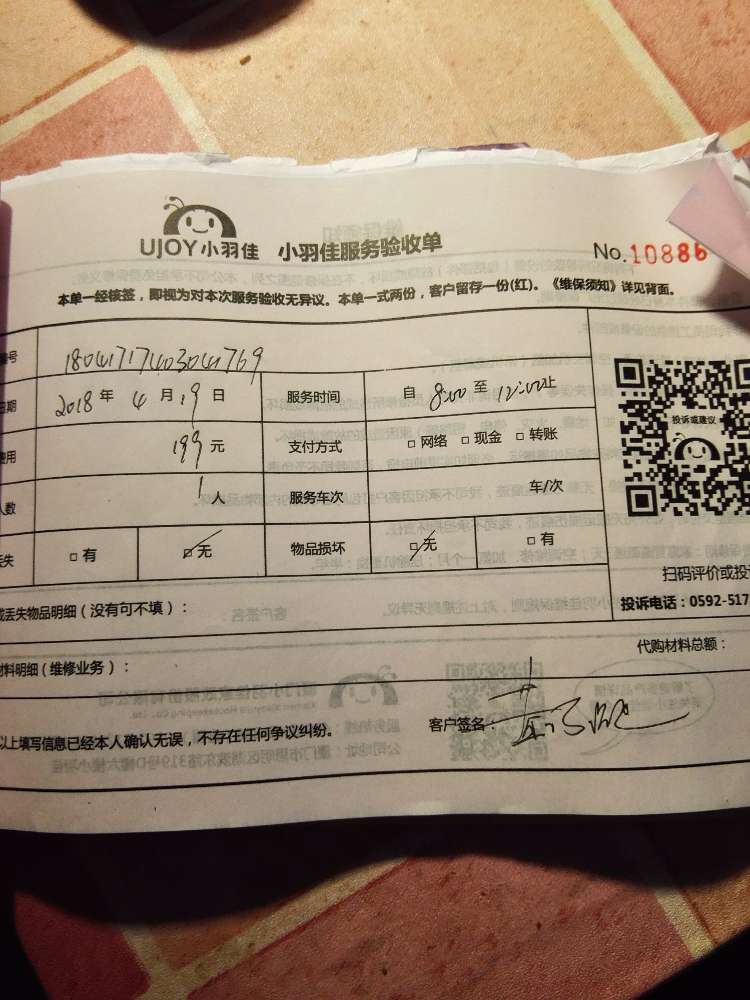 UJOY小羽佳 小羽佳服务验收单 No.10886
本单一经核签，即视为对本次服务验收无异议。本单一式两份，客户留存一份(红)。《维保须知》详见背面。
号 18041717403041769
期 2018年4月19日 服务时间 自 8:00 至 12:00止
用 199元 支付方式 □网络 □现金 □转账
人数 1人 服务车次 车/次
丢失 □有 □无 物品损坏 □无 □有
投诉或建议
扫码评价或投
投诉电话：0592-517
或丢失物品明细（没有可不填）：
代购材料总额：
材料明细（维修业务）：
以上填写信息已经本人确认无误，不存在任何争议纠纷。
客户签名：